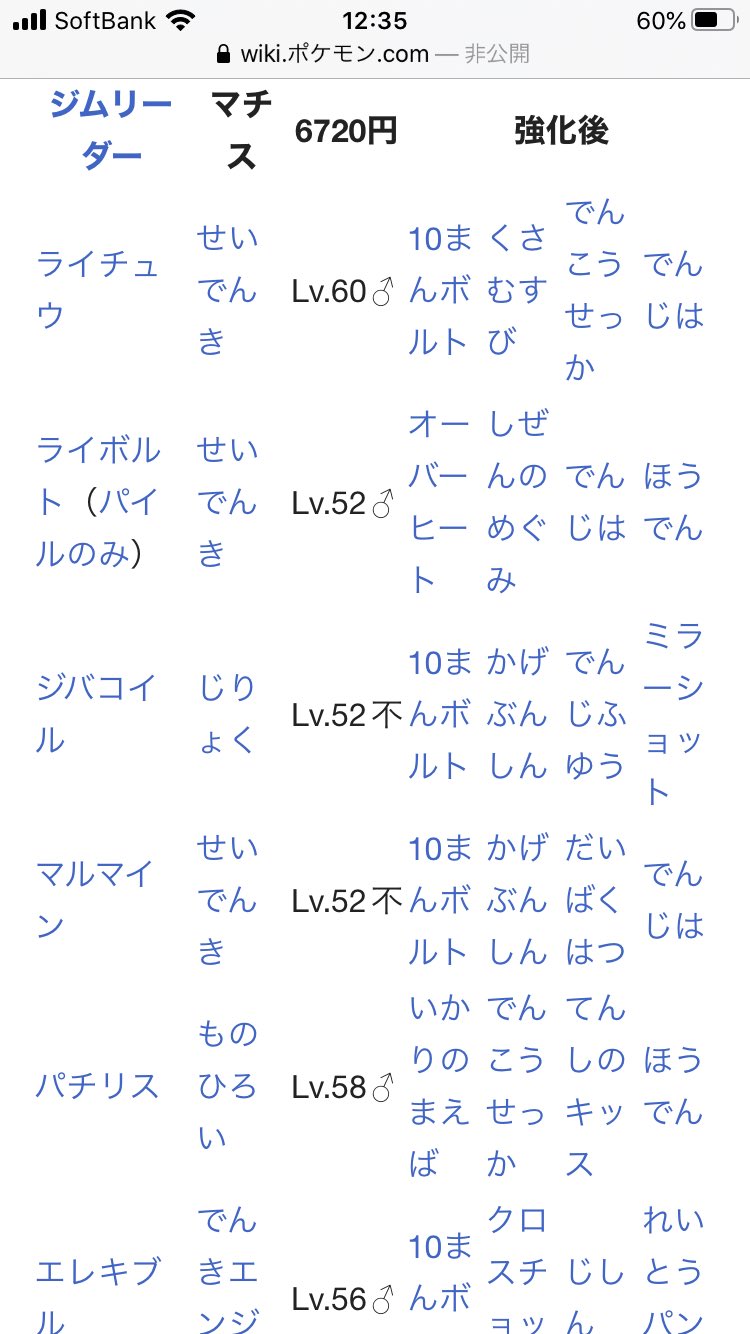 SoftBank 12:35 60%
wiki.ポケモン.com — 非公開
ジムリーダー マチス 6720円 強化後
ライチュウ せいでんき Lv.60♂ 10まんボルト くさむすび でんこうせっか でんじは
ライボルト（パイルのみ） せいでんき Lv.52♂ オーバーヒート しぜんのめぐみ でんじは ほうでん
ジバコイル じりょく Lv.52不 10まんボルト かげぶんしん でんじふゆう ミラーショット
マルマイン せいでんき Lv.52不 10まんボルト かげぶんしん だいばくはつ でんじは
パチリス ものひろい Lv.58♂ いかりのまえば でんこうせっか てんしのキッス ほうでん
エレキブル でんきエンジ Lv.56♂ 10まんボ クロスチョッ じしん れいとうパン